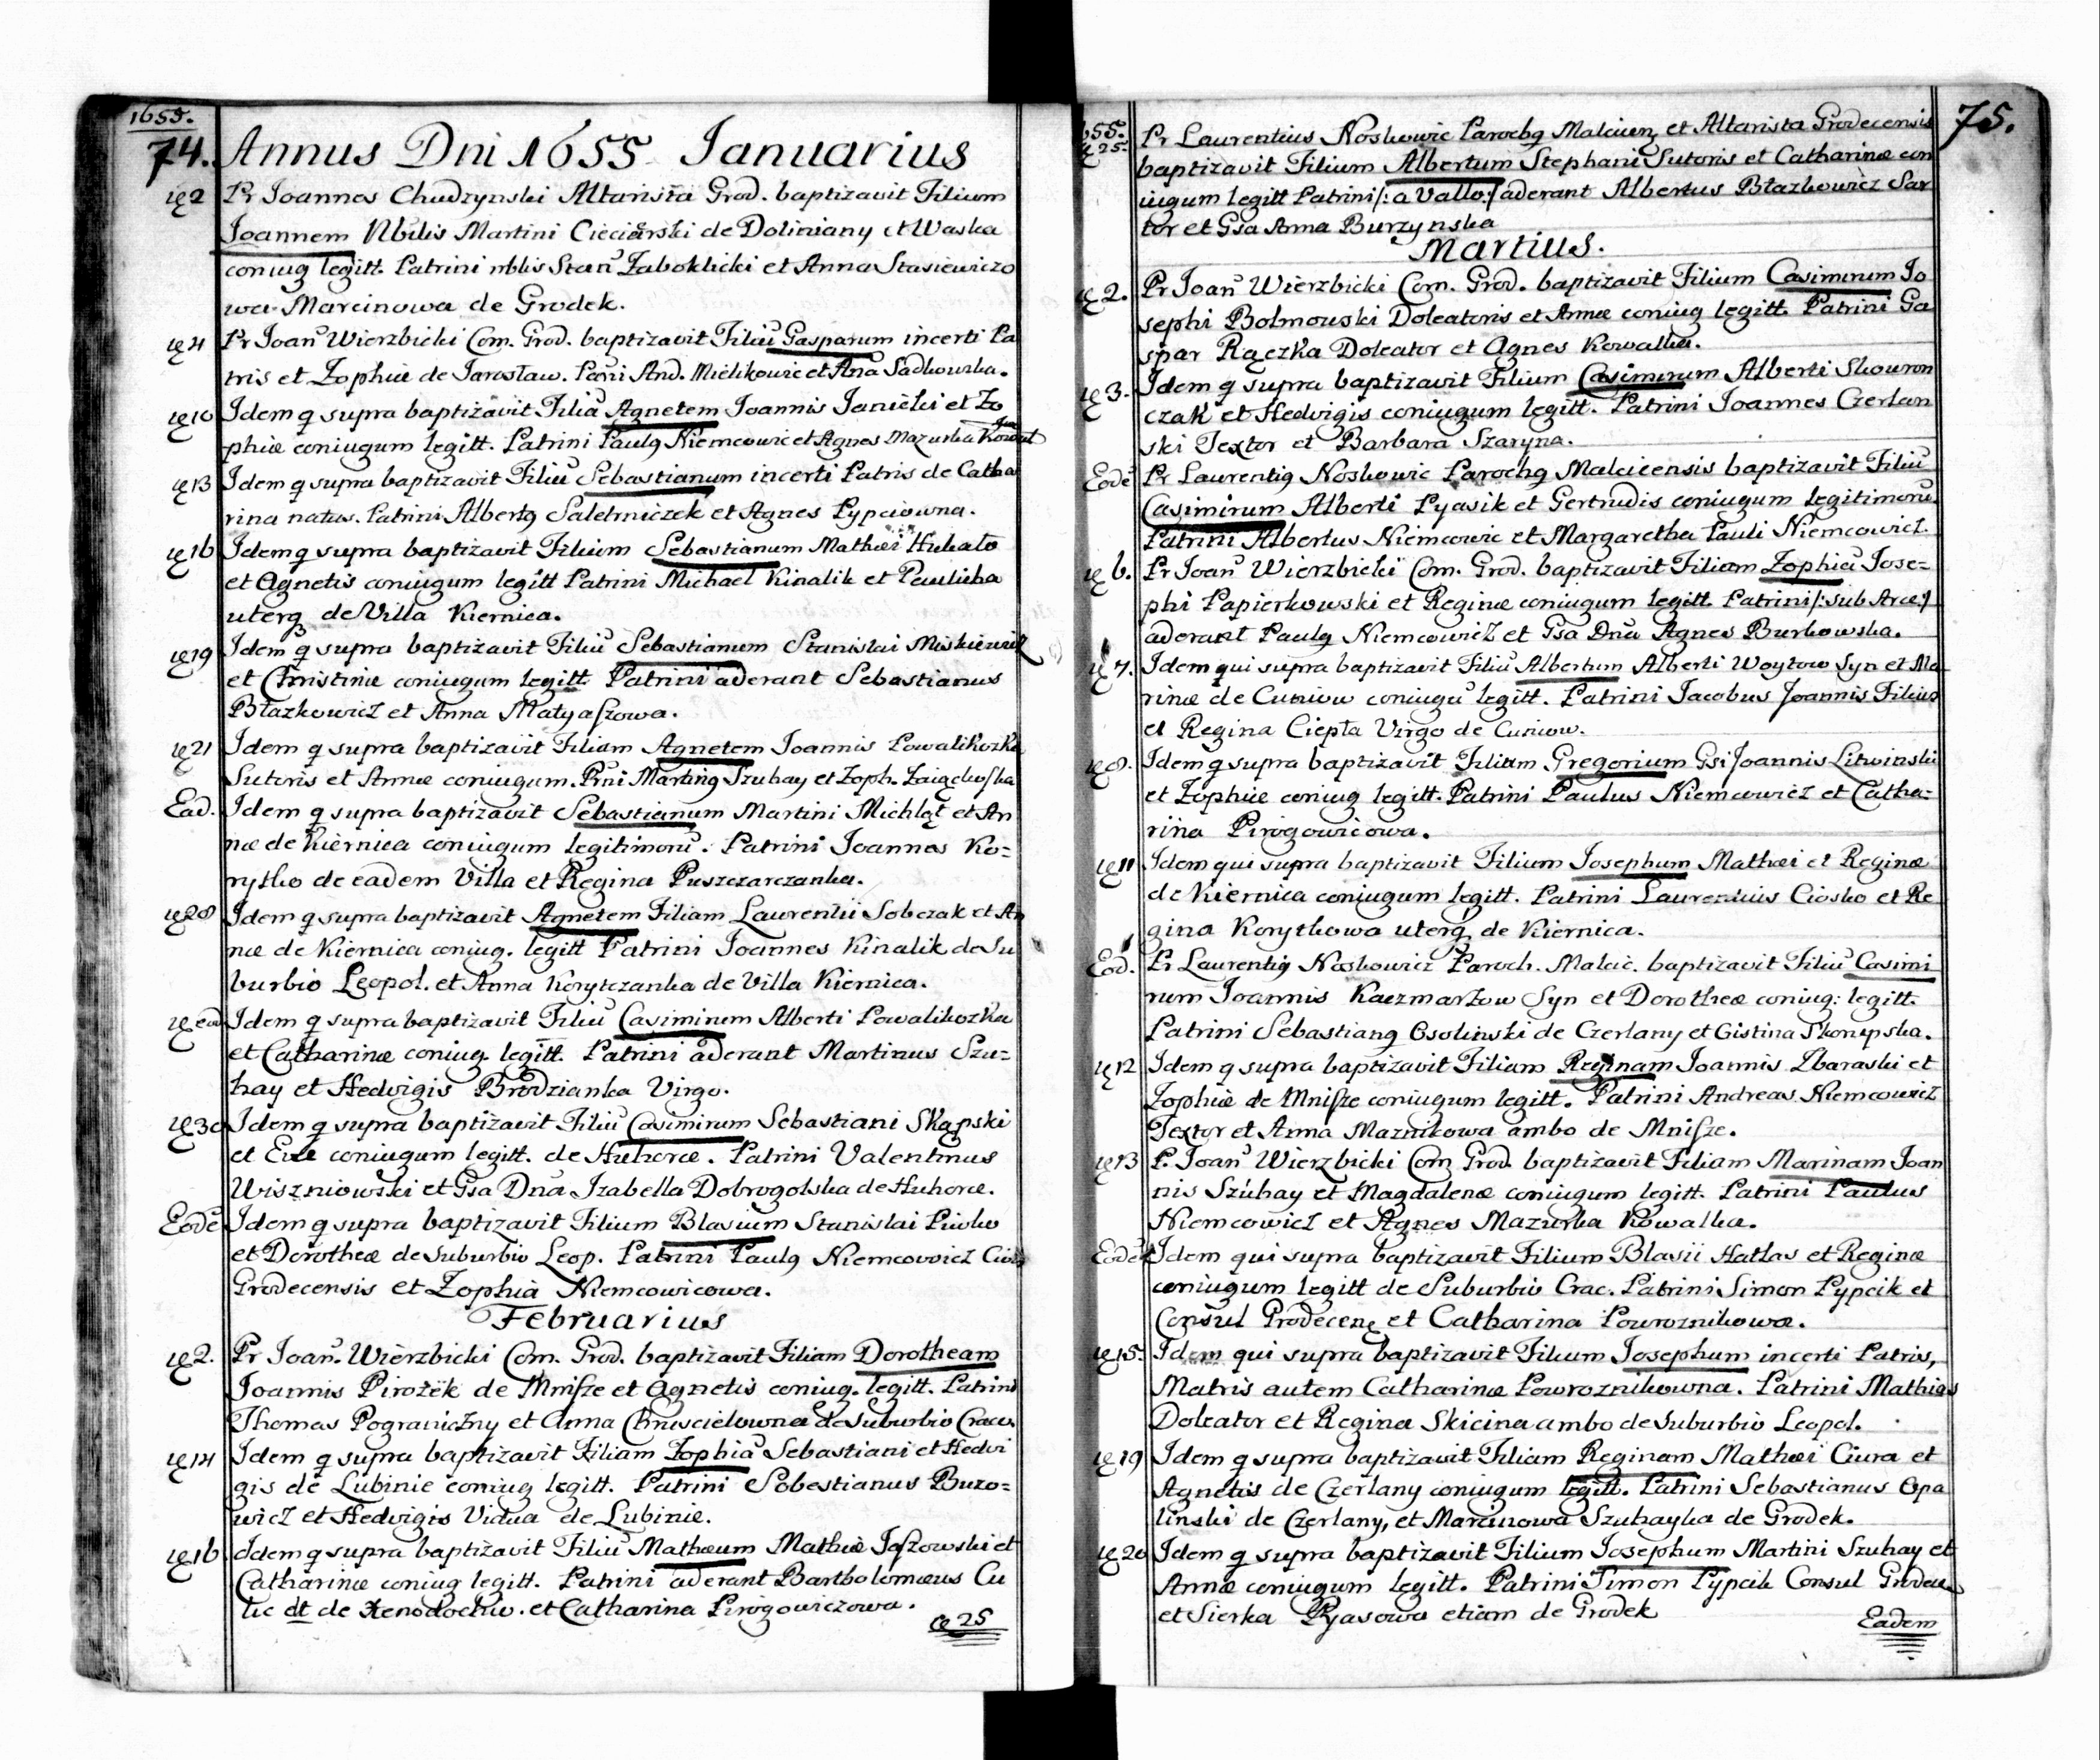 1655.
74. Annus Dni 1655 Ianuarius
2 Pr Joannes Chudzynski Altarista Grod. baptizavit Filium
Joannem Nbilis Martini Cieciărski de Doliniany et Waska
coniug legitt. Patrini nblis Stan Zaboklicki et Anna Stasiewiczo
wa Marcinowa de Grodek.
4 Pr Joan Wierzbicki Com. Grod. baptizavit Filiū Gasparum incerti Pa
tris et Zophiæ de Jarosław. Pani And. Mielikowic et Ana Sadkowska.
10 Idem q supra baptizavit Filiā Agnetem Joannis Janicki et Zo
phiæ coniugum legitt. Patrini Paulq Niemcowic et Agnes Mazurka Kowal
13 Idem q supra baptizavit Filiū Sebastianum incerti Patris de Catha
rina natus. Patrini Albertq Saletniczek et Agnes Pypciowna.
16 Idem q supra baptizavit Filium Sebastianum Mathæi Hukało
et Agnetis coniugum legitt Patrini Michael Kinalik et Paulicha
uterq de Villa Kiernica.
19 Idem q supra baptizavit Filiū Sebastianum Stanislai Miskiewicz
et Christinæ coniugum legitt. Patrini aderant Sebastianus
Błazkowicz et Anna Matyaszowa.
21 Idem q supra baptizavit Filiam Agnetem Joannis Powalikozka
Sutoris et Annæ coniugum. Prni Martinq Szuhay et Zoph.
Ead. Idem q supra baptizavit Sebastianum Martini Michląt et An
næ de Kiernica coniugum legitimorū. Patrini Joannes Ko=
rytko de eadem Villa et Regina Puszczarczanka.
28 Idem q supra baptizavit Agnetem Filiam Laurentii Sobczak et An
næ de Kiernica coniug. legitt Patrini Joannes Kinalik de Su
burbio Leopol. et Anna Korytczanka de Villa Kiernica.
ead Idem q supra baptizavit Filiū Casimirum Alberti Powalikozka
et Catharinæ coniug legitt. Patrini aderant Martinus Szu=
hay et Hedvigis Brodzianka Virgo.
30 Idem q supra baptizavit Filiū Casimirum Sebastiani Skąpski
et Evæ coniugum legitt. de Huhorce. Patrini Valentinus
Wiszniowski et Gsa Dna Izabella Dobrogolska de Huhorce.
Eodē Idem q supra baptizavit Filium Blasium Stanislai Piwko
et Dorotheæ de Suburbio Leop. Patrini Paulq Niemcowicz Civis
Grodecensis et Zophia Niemcowicowa.
Februarius
2. Pr Joan. Wierzbicki Com. Grod. baptizavit Filiam Dorotheam
Joannis Pirożek de Mnisze et Agnetis coniug. legitt. Patrini
Thomas Pograniczny et Anna Chrusciełowna de Suburbio Cracov
14 Idem q supra baptizavit Filiam Zophiā Sebastiani et Hedvi
gis de Lubinie coniug legitt. Patrini Sebestianus Buzo=
wicz et Hedvigis Vidua de Lubinie.
16 Idem q supra baptizavit Filiū Mathæum Mathiæ Jaszowski et
Catharinæ coniug legitt. Patrini aderant Bartholomæus Cu
lic dt de Xenodochio. et Catharina Pirogowiczowa.
25
75.
655.
25 Pr Laurentius Noskowic Parochq Malcien et Altarista Grodecensis
baptizavit Filium Albertum Stephani Sutoris et Catharinæ con
iugum legitt Patrini /: a Vallo :/ aderant Albertus Błazkowicz Sar
tor et Gsa Anna Burzynska
Martius.
2. Pr Joan Wierzbicki Com. Grod. baptizavit Filium Casimirum Jo
sephi Bolmowski Doleatoris et Annæ coniug legitt. Patrini Ga
spar Rączka Doleator et Agnes Kowalka.
3. Idem q supra baptizavit Filium Casimirum Alberti Skowron
czak et Hedvigis coniugum legitt. Patrini Joannes Czerlan
ski Textor et Barbara Szaryna.
Eodē Pr Laurentiq Noskowic Parochq Malcicensis baptizavit Filiū
Casimirum Alberti Pyasik et Gertrudis coniugum legitimorū.
Patrini Albertus Niemcowic et Margaretha Pauli Niemcowicz.
6. Pr Joan Wierzbicki Com. Grod. baptizavit Filiam Zophiā Jose=
phi Papierkowski et Reginæ coniugum legitt. Patrini /: sub Arce :/
aderant Paulq Niemcowicz et Gsa Dna Agnes Burkowska.
7. Idem qui supra baptizavit Filiū Albertum Alberti Woytow Syn et Ma
rinæ de Cuniow coniugū legitt. Patrini Jacobus Joannis Filius
et Regina Ciepła Virgo de Cuniow.
8. Idem q supra baptizavit Filium Gregorium Gsi Joannis Litwinski
et Zophiæ coniug legitt. Patrini Paulus Niemcowicz et Catha=
rina Pirogowicowa.
11 Idem qui supra baptizavit Filium Josephum Mathæi et Reginæ
de Kiernica coniugum legitt. Patrini Laurentius Ciosko et Re
gina Korytkowa uterq de Kiernica.
Eod. Pr Laurentiq Noskowicz Paroch. Malcic. baptizavit Filiū Casimi
rum Joannis Kaczmarzow Syn et Dorotheæ coniug: legitt.
Patrini Sebastianq Osolinski de Czerlany et Cistina Skonepska.
12 Idem q supra baptizavit Filiam Reginam Joannis Zbaraski et
Zophiæ de Mnisze coniugum legitt. Patrini Andreas Niemcowicz
Textor et Anna Maznikowa ambo de Mnisze.
13 P. Joan Wierzbicki Com Grod. baptizavit Filiam Marinam Joan
nis Szuhay et Magdalenæ coniugum legitt. Patrini Paulus
Niemcowicz et Agnes Mazurka Kowalka.
Eodē Idem qui supra baptizavit Filium Blasii Hatlas et Reginæ
coniugum legitt de Suburbio Crac. Patrini Simon Pypcik et
Consul Grodecenę et Catharina Powroznikowa.
15. Idem qui supra baptizavit Filium Josephum incerti Patris,
Matris autem Catharinæ Powroznikowna. Patrini Mathias
Doleator et Regina Skicina ambo de Suburbio Leopol.
19 Idem q supra baptizavit Filiam Reginam Mathæi Ciura et
Agnetis de Czerlany coniugum legitt. Patrini Sebastianus Opa
linski de Czerlany, et Marcinowa Szuhayka de Grodek.
20 Idem q supra baptizavit Filium Josephum Martini Szuhay et
Annæ coniugum legitt. Patrini Simon Pypcik Consul Grodecen
et Sierka Pyasowa etiam de Grodek
Eadem